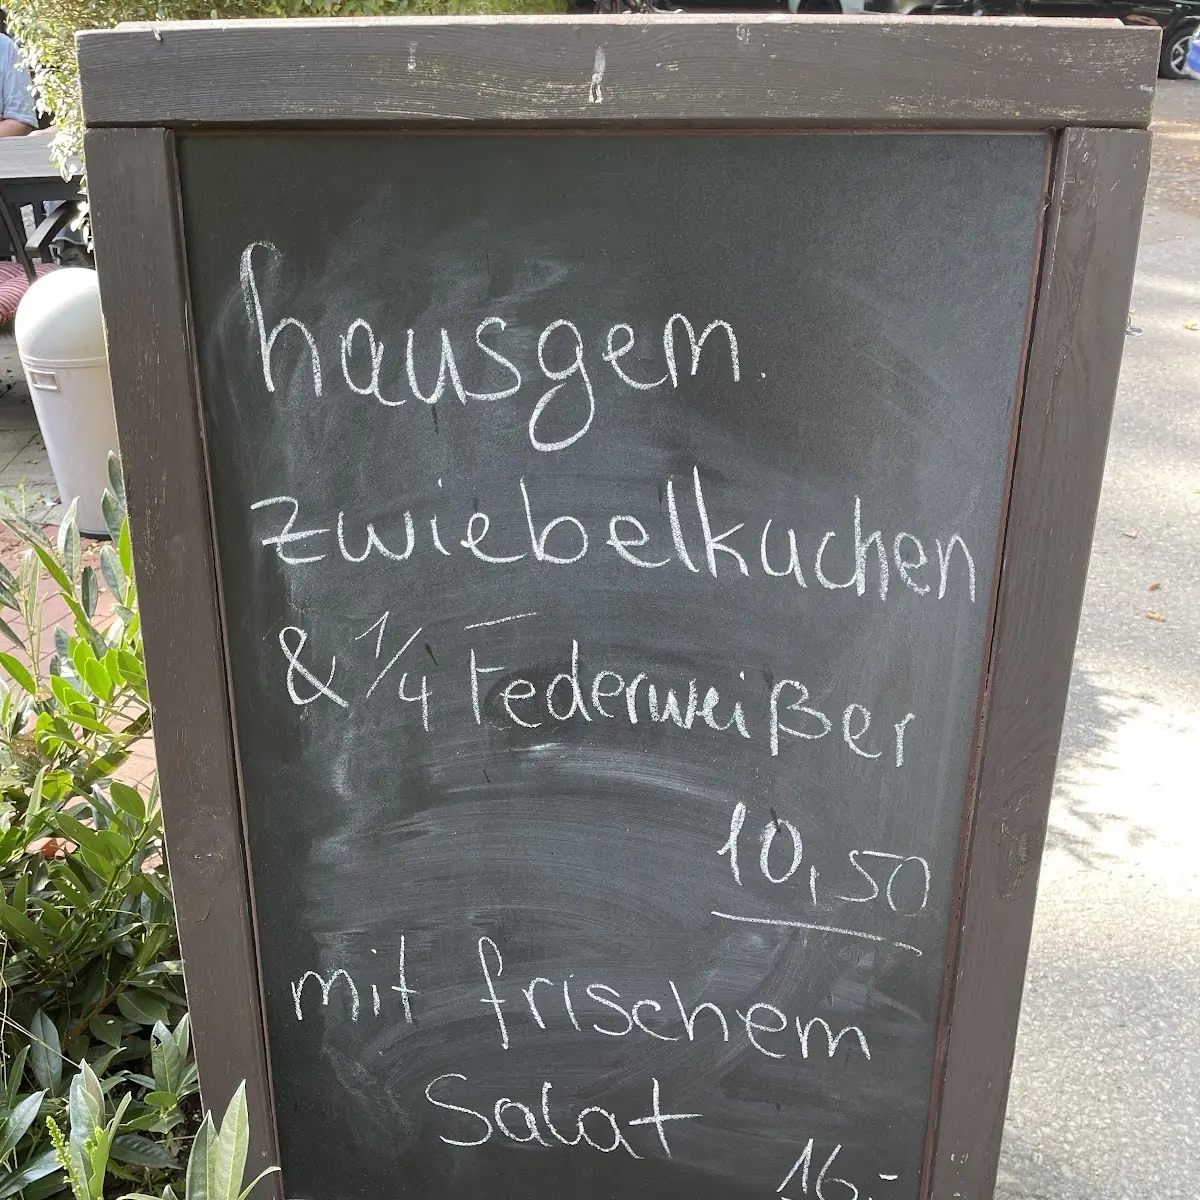 hausgem.
zwiebelkuchen
& 1/4 Federweißer
10,50
mit frischem
Salat
16,-